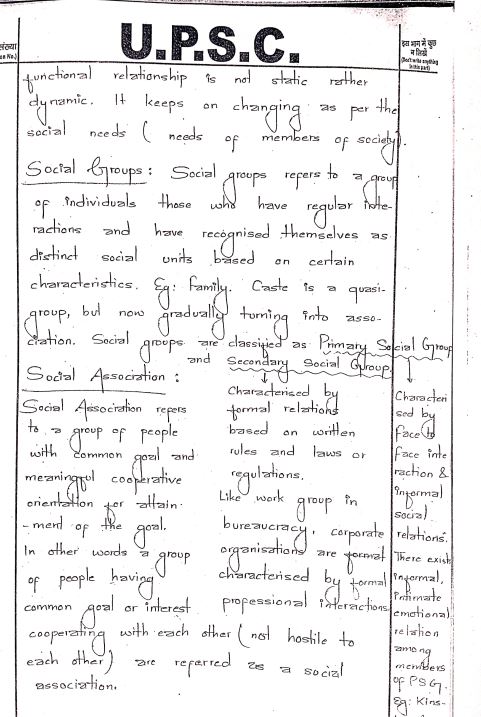 संख्या
on No.)
U.P.S.C.
इस भाग में कुछ
न लिखें
(Don't write anything
in this part)
functional relationship is not static rather
dynamic. It keeps on changing as per the
social needs ( needs of members of society).
Social Groups : Social groups refers to a group
of individuals those who have regular inte-
ractions and have recognised themselves as
distinct social units based on certain
characteristics. Eg: Family. Caste is a quasi-
group, but now gradually turning into asso-
ciation. Social groups are classified as Primary Social Group
and Secondary Social Group.
Social Association :
Social Association refers
to a group of people
with common goal and
meaningful cooperative
orientation for attain-
-ment of the goal.
In other words a group
of people having
common goal or interest
cooperating with each other ( not hostile to
each other) are referred as a social
association.
Characterised by
formal relations
based on written
rules and laws or
regulations.
Like work group in
bureaucracy, corporate
organisations are formal
characterised by formal
professional interactions
Characteri
sed by
face to
face inte
raction &
informal
social
relations.
There exists
informal,
intimate
emotional
relation
among
members
of PSG.
Eg: Kins-